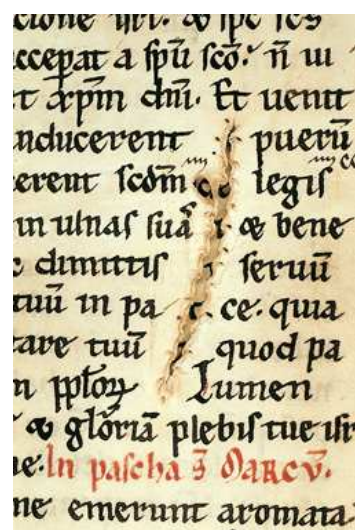 isrł. & sp̄c sc̄s
accep̄at a spū scō. n̄ ui
xp̄m dn̄i. Et uenit
nducerent puerū
erent scd̄m legis
in ulnas suā & bene
dimittis seruū
tuū in pa ce. quia
tare tuū quod pa
n pp̄loꝝ Lumen
& glōriā plebis tue isr
ne. In pascha s̄ Marcū.
ne emerunt aromata